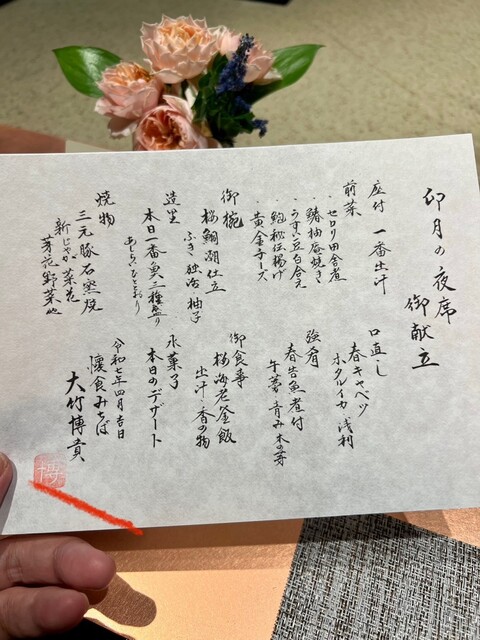 卯月の夜席
御献立
座付 一番出汁
前菜
・セロリ田舎煮
・鰆柚庵焼き
・うすい豆白合え
・鮑秘伝揚げ
・黄金チーズ
御椀
桜鯛潮仕立
ふき 独活 柚子
造里
本日一番の魚三種盛り
あしらいひととおり
焼物
三元豚石窯焼
新じゃが 菜花
芽花野菜
口直し
春キャベツ
ホタルイカ 浅利
強肴
春告魚煮付
牛蒡 青み 木の芽
御食事
桜海老釜飯
出汁・香の物
水菓子
本日のデザート
令和七年四月吉日
懐食みちば
大竹博貴
博